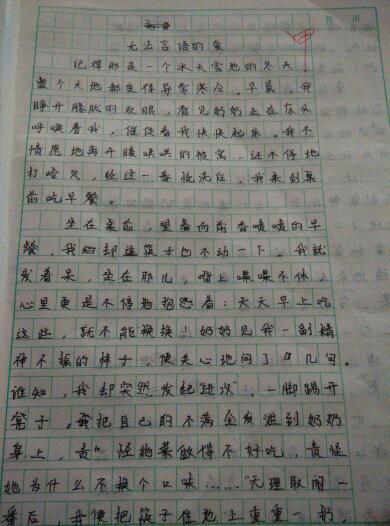 批语
无法言语的爱
记得那是一个冰天雪地的冬天,
整个大地都变得异常寒冷。早晨,我
睁开朦胧的双眼,看见奶奶正在床头
呼唤着我,催促着我快快起床。我不
情愿地离开暖烘烘的被窝,还不停地
打哈欠,经过一番梳洗后,我来到桌
前吃早餐。
坐在桌前,望着面前香喷喷的早
餐,我却连筷子也不动一下。我就
发着呆,坐在那儿,嘴上喋喋不休,
心里更是不停地抱怨着:天天早上吃
这些,就不能换换!奶奶见我一副精
神不振的样子,便关心地问了几句。
谁知,我却突然发起进攻,一脚踢开
凳子,我把自己的不满全发泄到奶奶
身上,责怪她菜做得不好吃,责怪
她为什么不换个口味……"无理取闹一
番后,我便把筷子往地上重重一扔